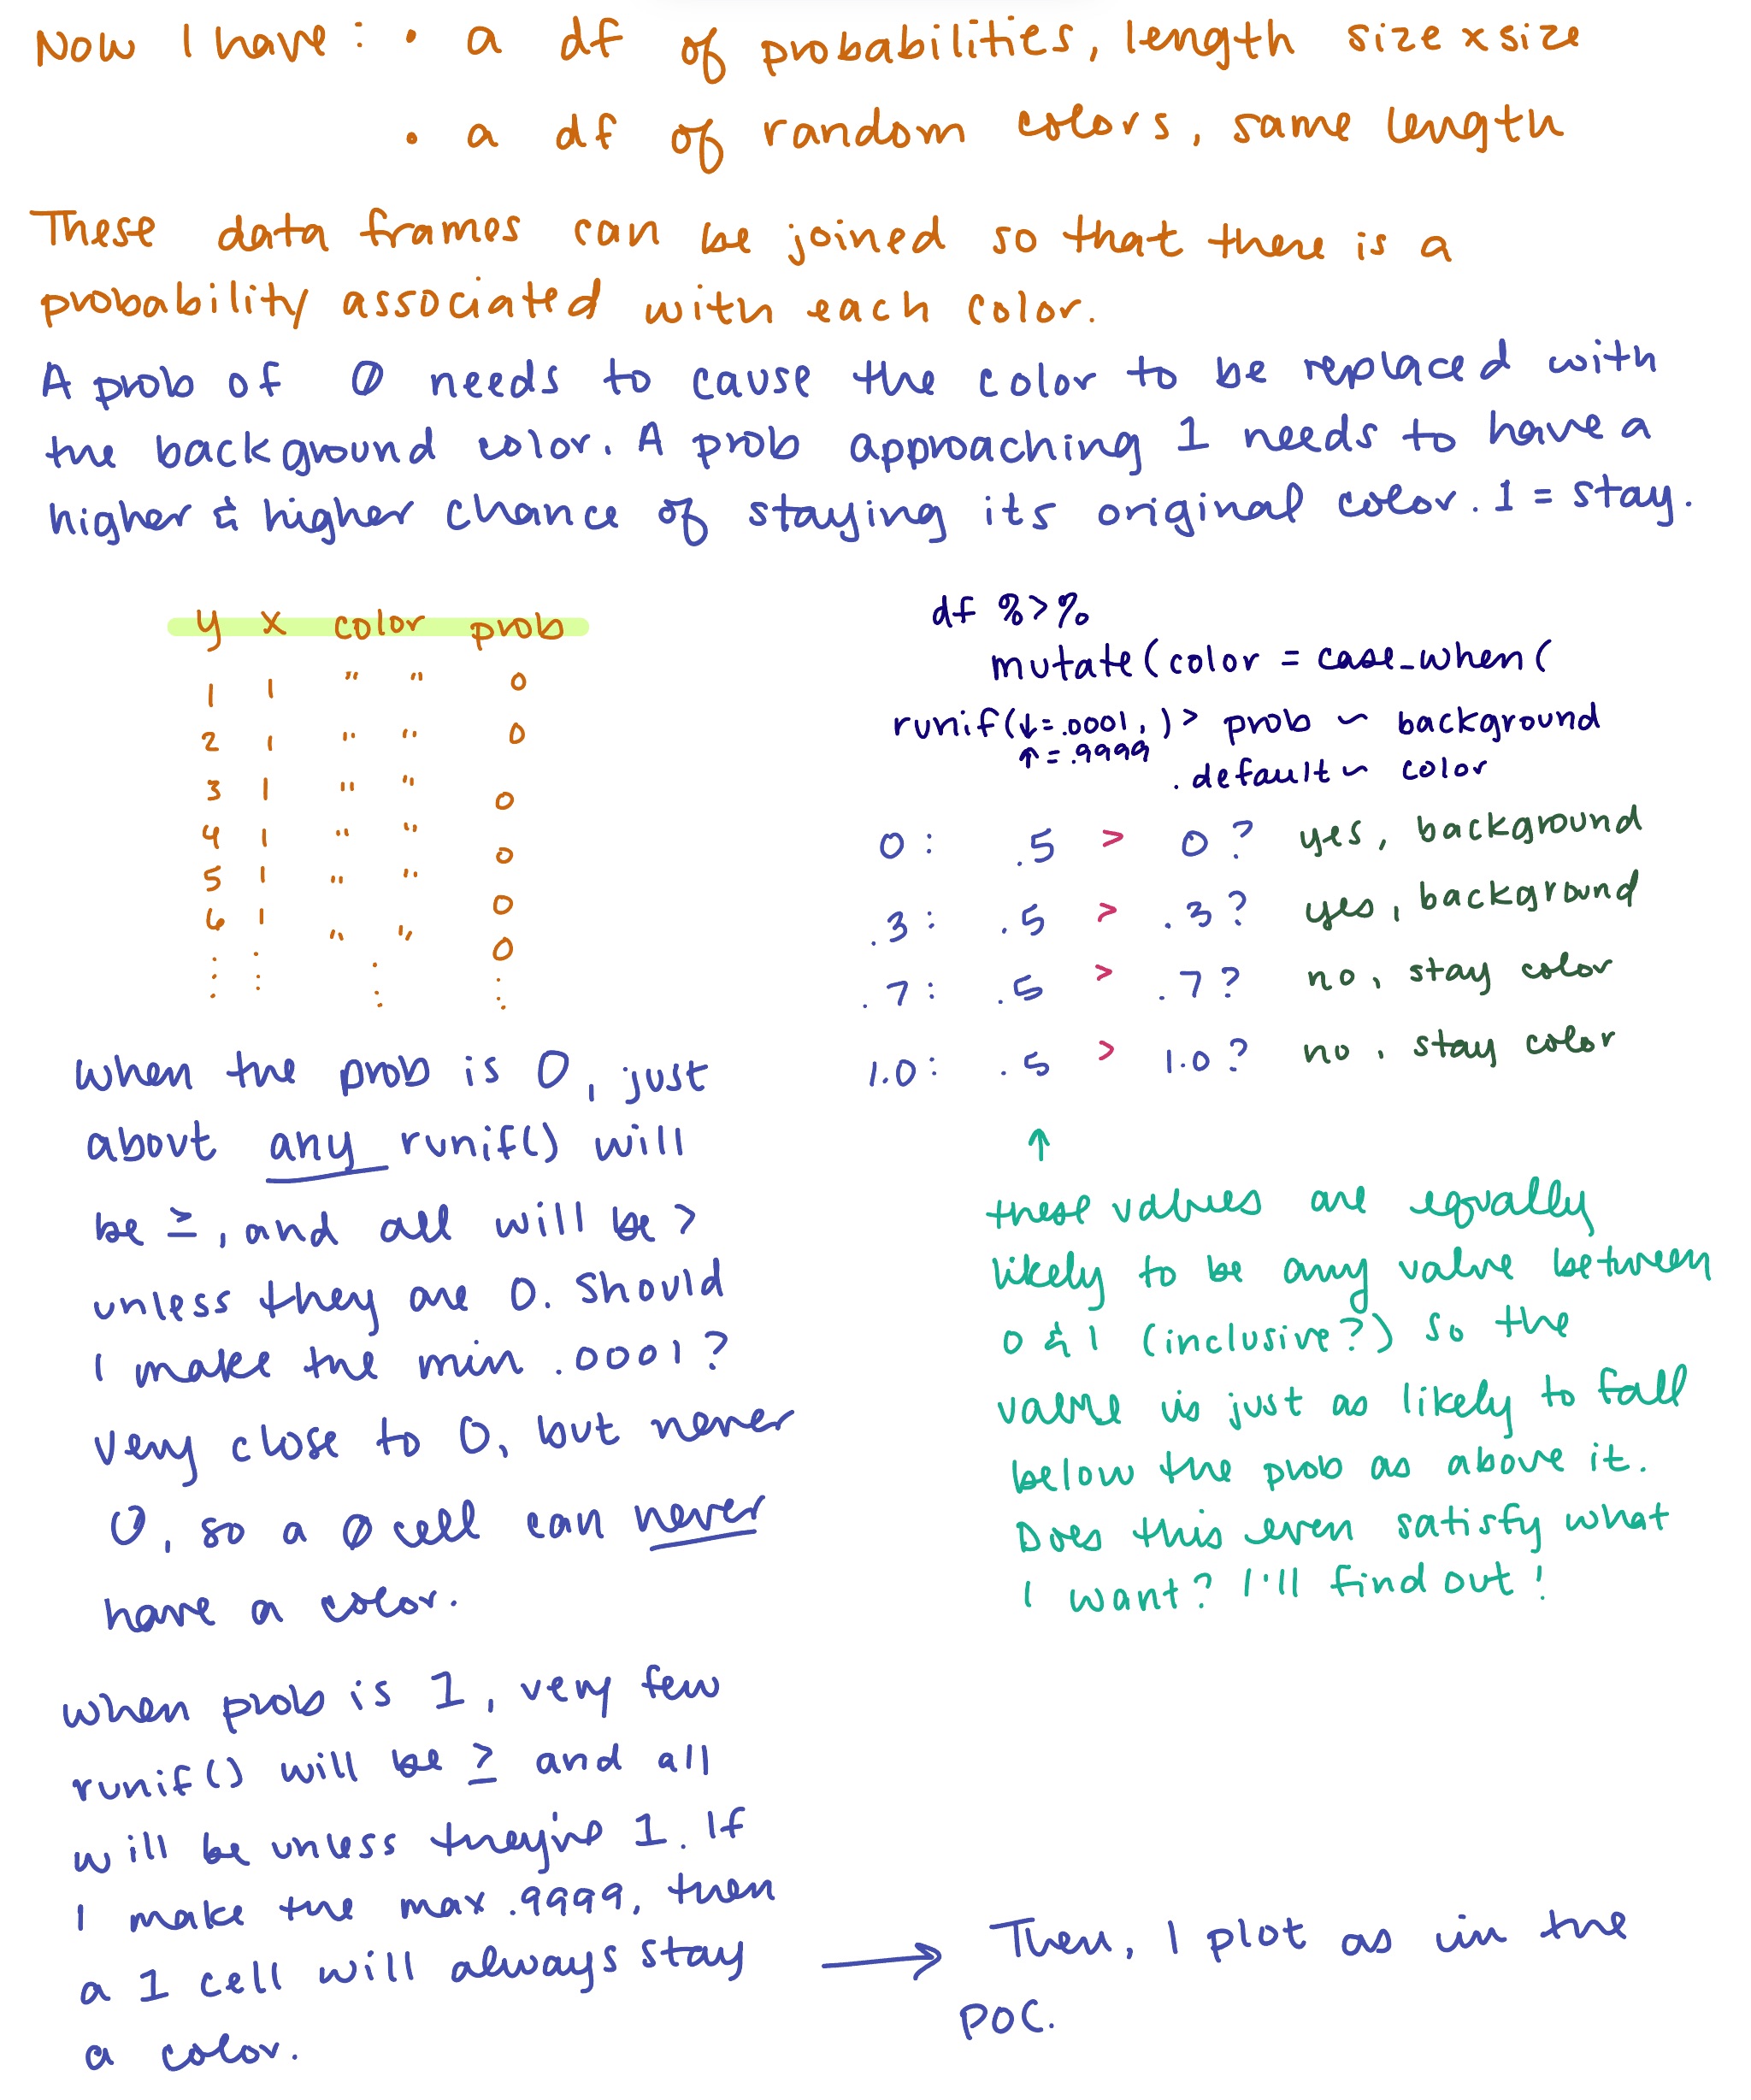 Now I have: • a df of probabilities, length size x size
• a df of random colors, same length
These data frames can be joined so that there is a
probability associated with each color.
A prob of 0 needs to cause the color to be replaced with
the background color. A prob approaching 1 needs to have a
higher & higher chance of staying its original color. 1 = stay.
y x color prob
1 1 " " 0
2 1 " " 0
3 1 " " 0
4 1 " " 0
5 1 " " 0
6 1 " " 0
⋮ ⋮ ⋮ ⋮
df %>%
mutate(color = case_when(
runif(↓=.0001, ) > prob ~ background
↑=.9999
.default ~ color
0: .5 > 0? yes, background
.3: .5 > .3? yes, background
.7: .5 > .7? no, stay color
1.0: .5 > 1.0? no, stay color
when the prob is 0, just
about any runif() will
be ≥, and all will be >
unless they are 0. Should
I make the min .0001?
Very close to 0, but never
0, so a 0 cell can never
have a color.
↑
these values are equally
likely to be any value between
0 & 1 (inclusive?) so the
value is just as likely to fall
below the prob as above it.
Does this even satisfy what
I want? I'll find out!
when prob is 1, very few
runif() will be ≥ and all
will be unless they're 1. If
I make the max .9999, then
a 1 cell will always stay
a color.
→ Then, I plot as in the
POC.